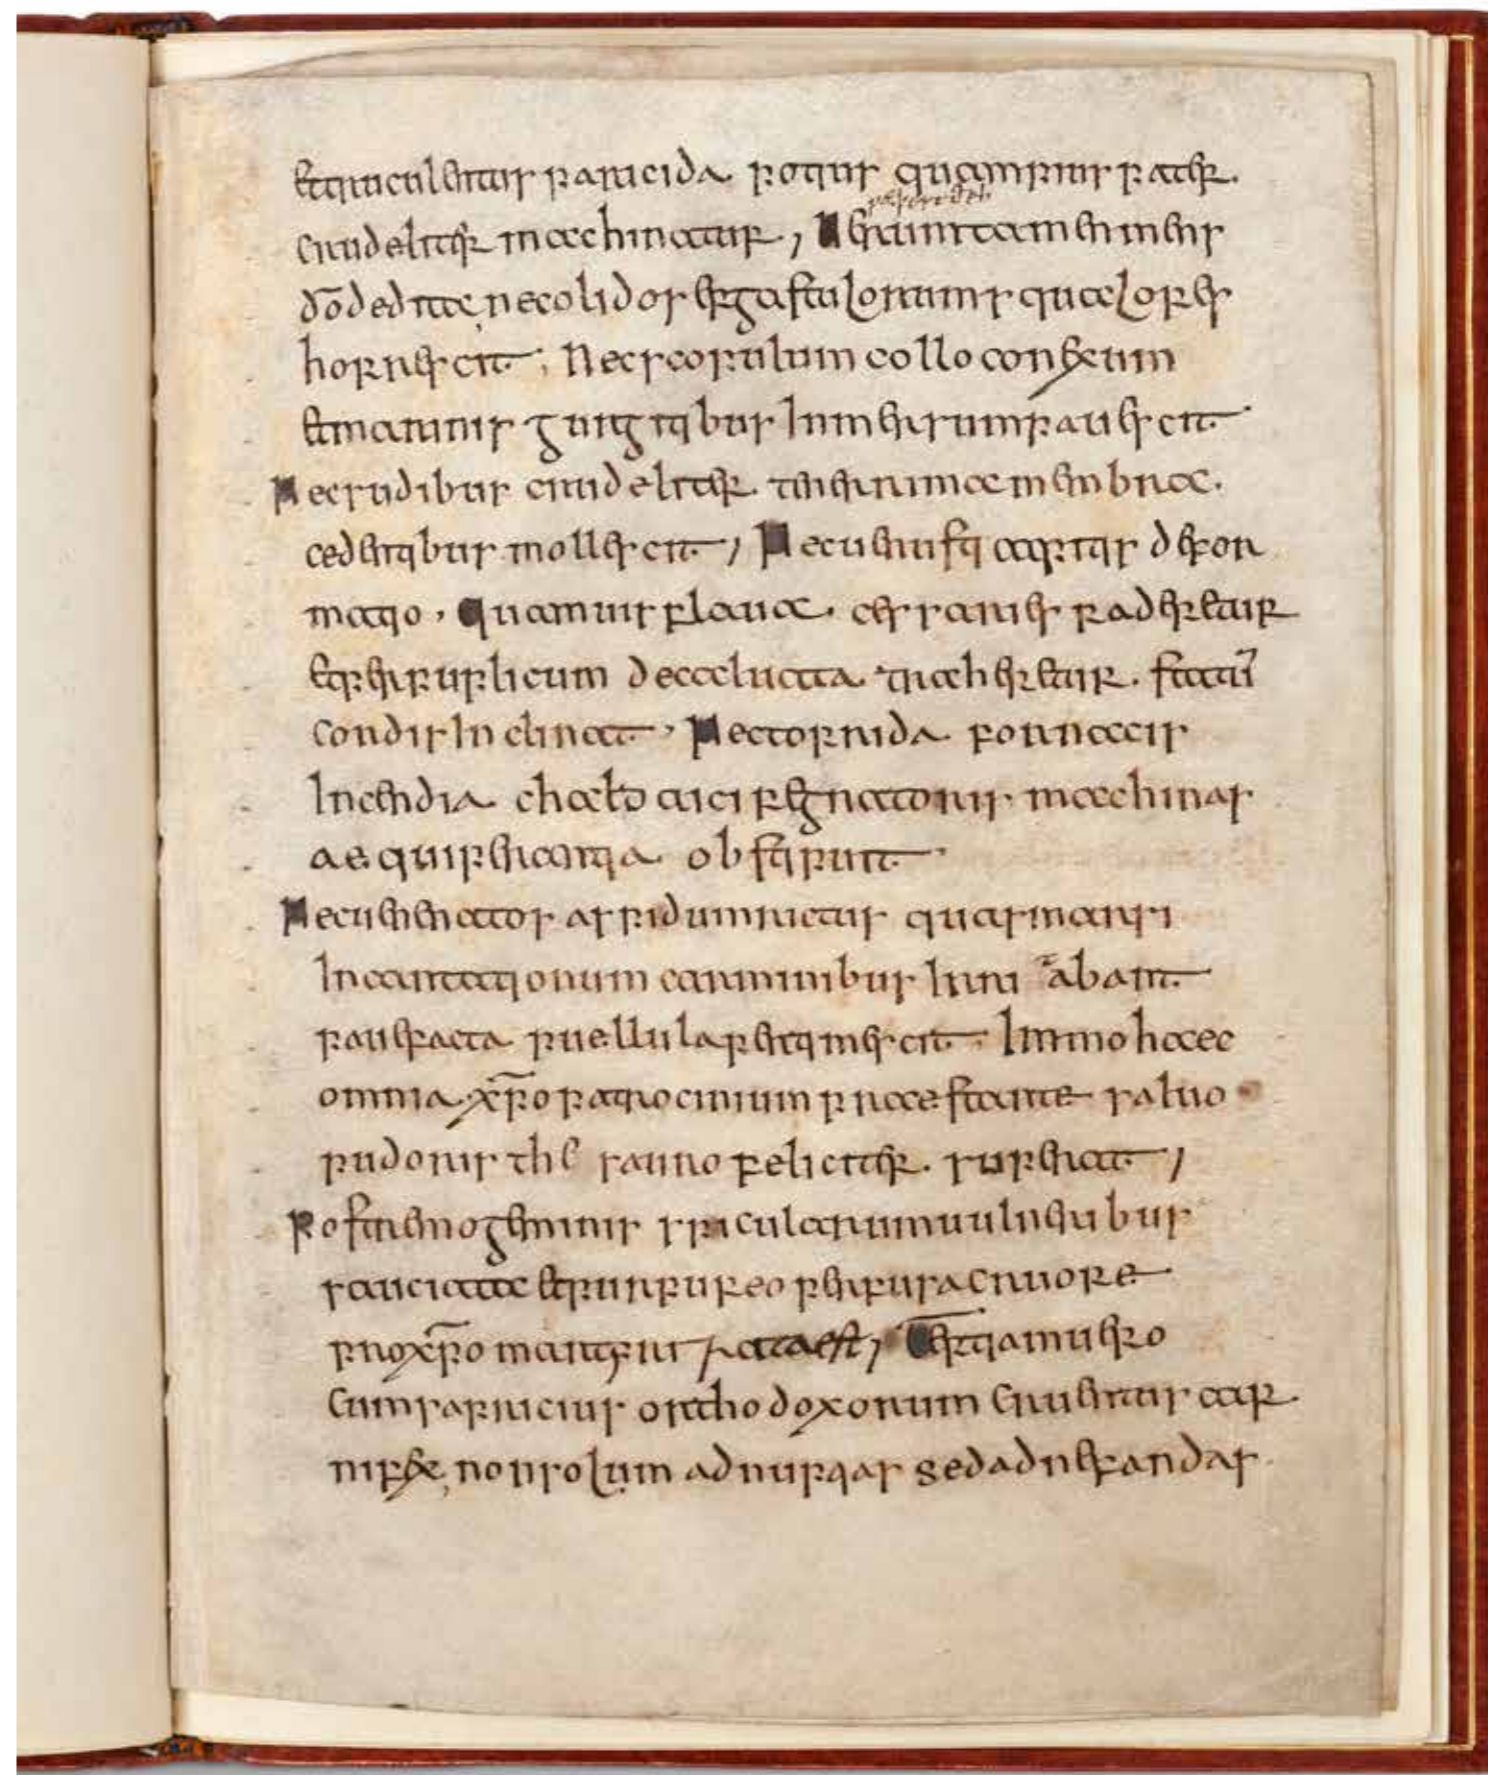 et truculentus parricida potius quam pius pater.
crudeliter machinatur, Uerum tamen mens
dō dedita, nec olidos ergastulorum squalores
horrescit; Nec scopulum collo conexum
et marinis gurgitibus Inmersum pauescit
Nec rudibus crudeliter tenerrima membra.
cedentibus mollescit, Nec uenusti capitis defor
matio, quamuis flaua cesaries raderetur
et per puplicum decaluata traheretur. statū
cordis Inclinat, Nec torrida fornacis
Incendia chaldaici regnatoris machinas
aequiperantia obstipuit
Nec uenenatos aspidum rictus quas marsi
Incantationum carminibus Inritabant
pauefacta puellula pertimescit. Immo haec
omnia xp̄o patrocinium praestante saluo
pudoris the sauro feliciter. superat,
Postremo geminis spiculorum uulneribus
sauciata et purpureo perfusa cruore
pro xp̄o martyrizata est, Tertiam uero
Cum orthodoxorum cruentus car
nifex, non solum ad nuptias sed ad nefandas